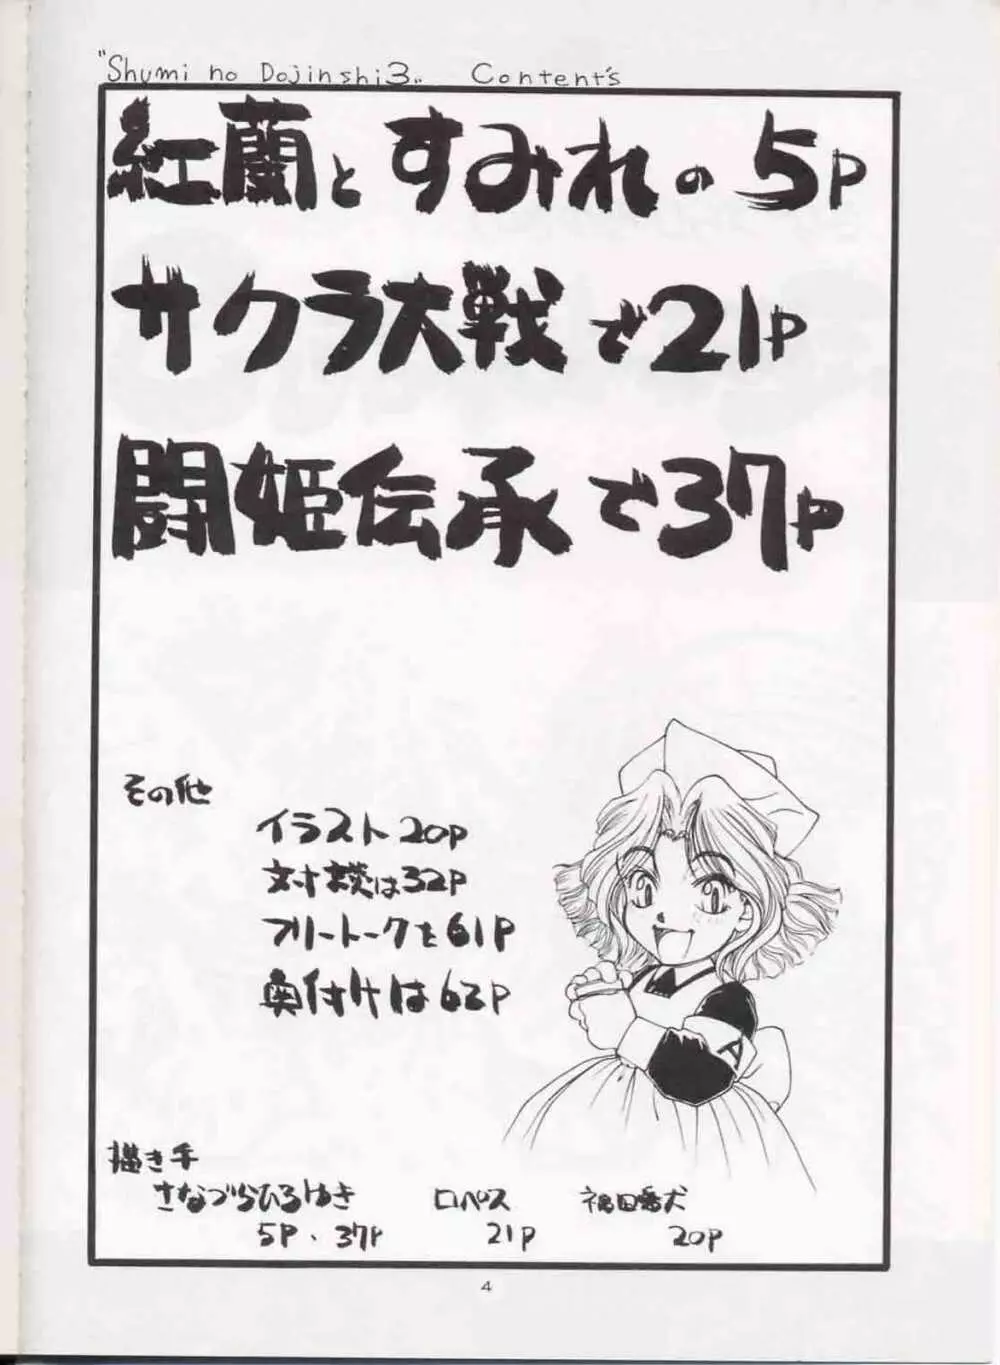 "Shumi no Dojinshi3" Content's
紅蘭とすみれの5P
サクラ大戦で21P
闘姫伝承で37P
その他
イラスト20P
対談は32P
フリートークを61P
奥付けは62P
描き手
さなづらひろゆき
5P・37P
ロペス
21P
福田蛮犬
20P
A
4